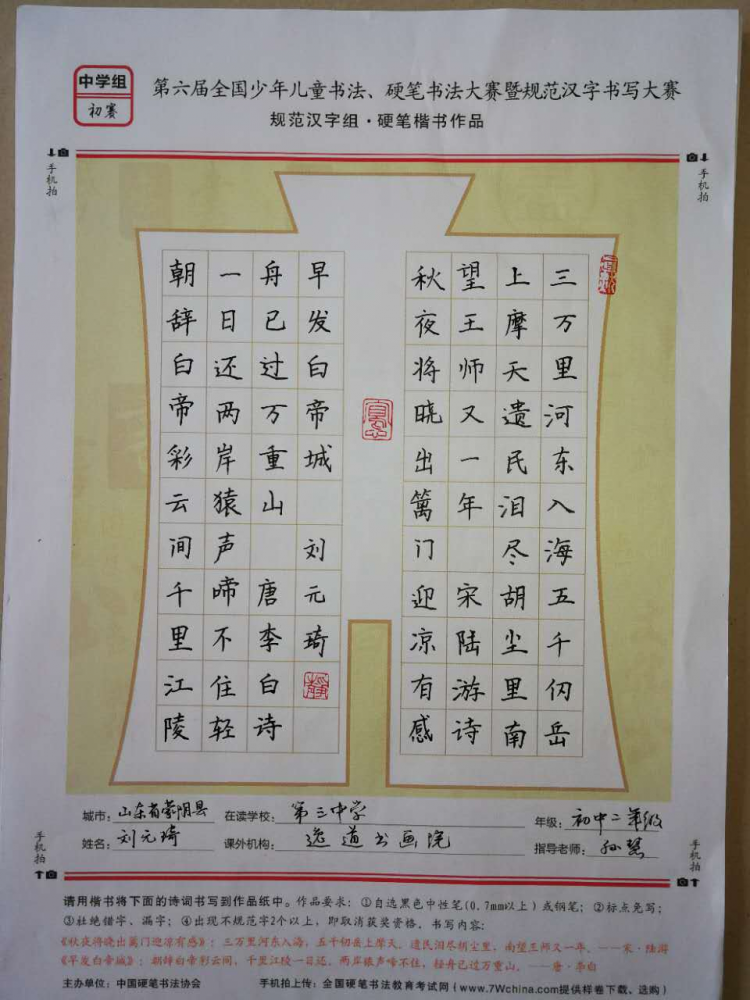 中学组
初赛
第六届全国少年儿童书法、硬笔书法大赛暨规范汉字书写大赛
规范汉字组·硬笔楷书作品
手机拍
手机拍
三万里河东入海五千仞岳
上摩天遗民泪尽胡尘里南
望王师又一年 宋陆游诗
秋夜将晓出篱门迎凉有感
朝辞白帝彩云间千里江陵
一日还两岸猿声啼不住轻
舟已过万重山 唐李白诗
早发白帝城 刘元琦
城市: 山东省蒙阴县 在读学校: 第三中学 年级: 初中二年级
姓名: 刘元琦 课外机构: 逸道书画院 指导老师: 孙慧
手机拍
手机拍
请用楷书将下面的诗词书写到作品纸中。作品要求：①自选黑色中性笔(0.7mm以上)或钢笔；②标点免写；
③杜绝错字、漏字；④出现不规范字2个以上，即取消获奖资格。书写内容：
《秋夜将晓出篱门迎凉有感》：三万里河东入海，五千仞岳上摩天。遗民泪尽胡尘里，南望王师又一年。——宋·陆游
《早发白帝城》：朝辞白帝彩云间，千里江陵一日还。两岸猿声啼不住，轻舟已过万重山。——唐·李白
主办单位：中国硬笔书法协会 手机拍上传：全国硬笔书法教育考试网(www.7Wchina.com提供样卷下载、选购)